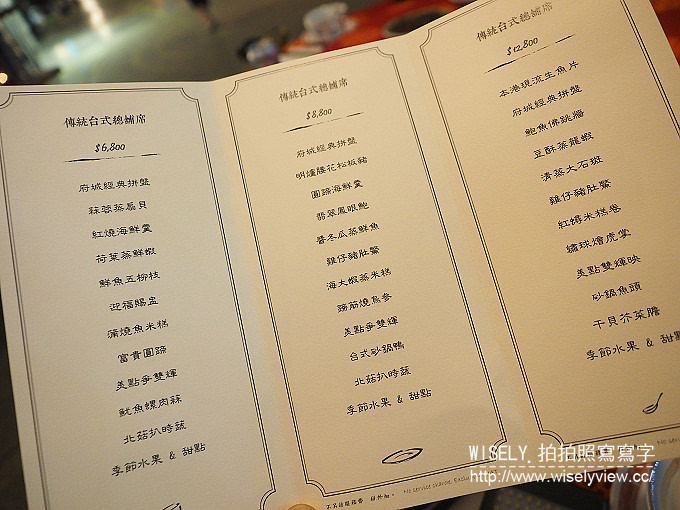 傳統台式總舖席
$6,800
府城經典拼盤
蒜蓉蒸扇貝
紅燒海鮮羹
荷葉蒸鮮蝦
鮮魚五柳枝
迎福賜盅
蒲燒魚米糕
富貴圓蹄
美點爭雙輝
魷魚螺肉蒜
北菇扒時蔬
季節水果 & 甜點
傳統台式總舖席
$8,800
府城經典拼盤
明爐腰花松板豬
圓蹄海鮮羹
翡翠鳳眼鮑
香冬瓜蒸鮮魚
雞仔豬肚鱉
海大蝦蒸米糕
蹄筋燒烏參
美點爭雙輝
台式砂鍋鴨
北菇扒時蔬
季節水果 & 甜點
傳統台式總舖席
$12,800
本港現流生魚片
府城經典拼盤
鮑魚佛跳牆
豆酥蒸龍蝦
清蒸大石斑
雞仔豬肚鱉
紅蟳米糕卷
繡球燴虎掌
美點雙輝映
砂鍋魚頭
干貝芥菜膽
季節水果 & 甜點
No service charge.
WISELY. 拍拍照寫寫字
http://www.wiselyview.cc/